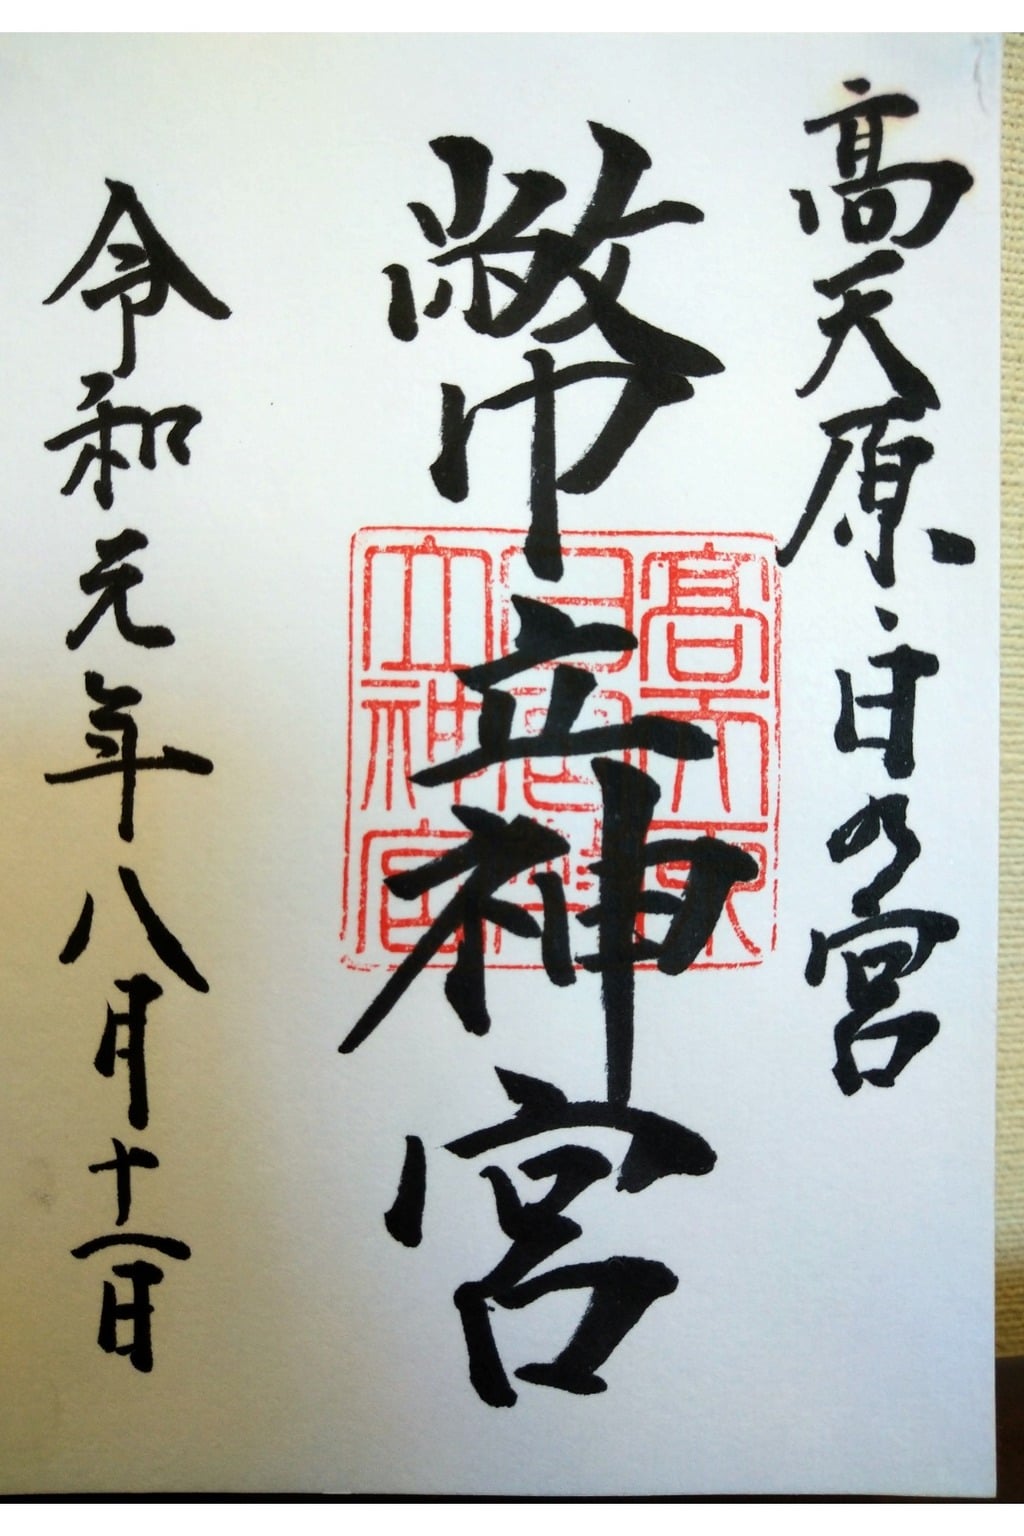 高天原日乃宮
幣立神宮
令和元年八月十一日
高天原
日宮幣
立神宮